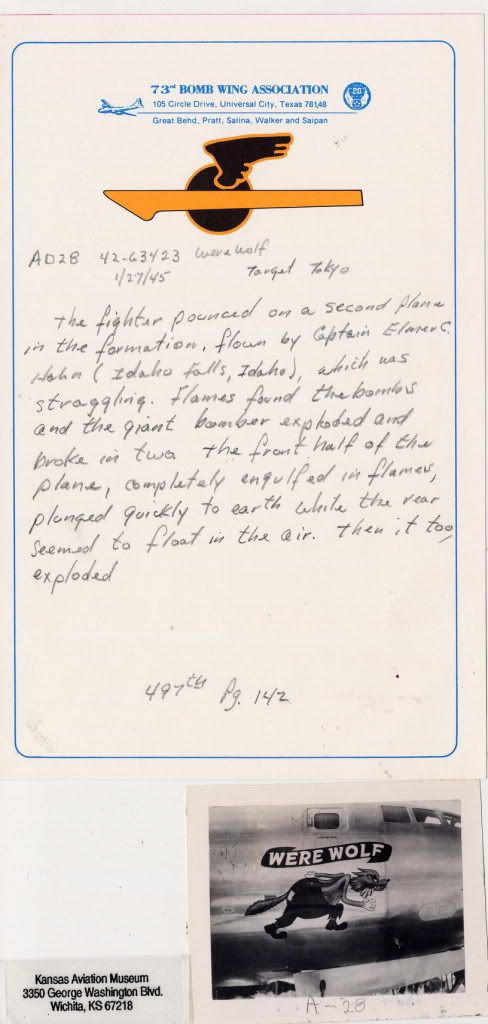 73rd BOMB WING ASSOCIATION
105 Circle Drive, Universal City, Texas 78148
Great Behd, Pratt, Salina, Walker and Saipan
20
AD28 42-63423 Werewolf
1/27/45 Target Tokyo
The fighter pounced on a second plane
in the formation, flown by Captain Elmer C.
Hahn (Idaho Falls, Idaho), which was
straggling. Flames found the bombs
and the giant bomber exploded and
broke in two the front half of the
plane, completely engulfed in flames,
plunged quickly to earth while the rear
seemed to float in the air. Then it too,
exploded
497th Pg. 142
WERE WOLF
A-28
Kansas Aviation Museum
3350 George Washington Blvd.
Wichita, KS 67218